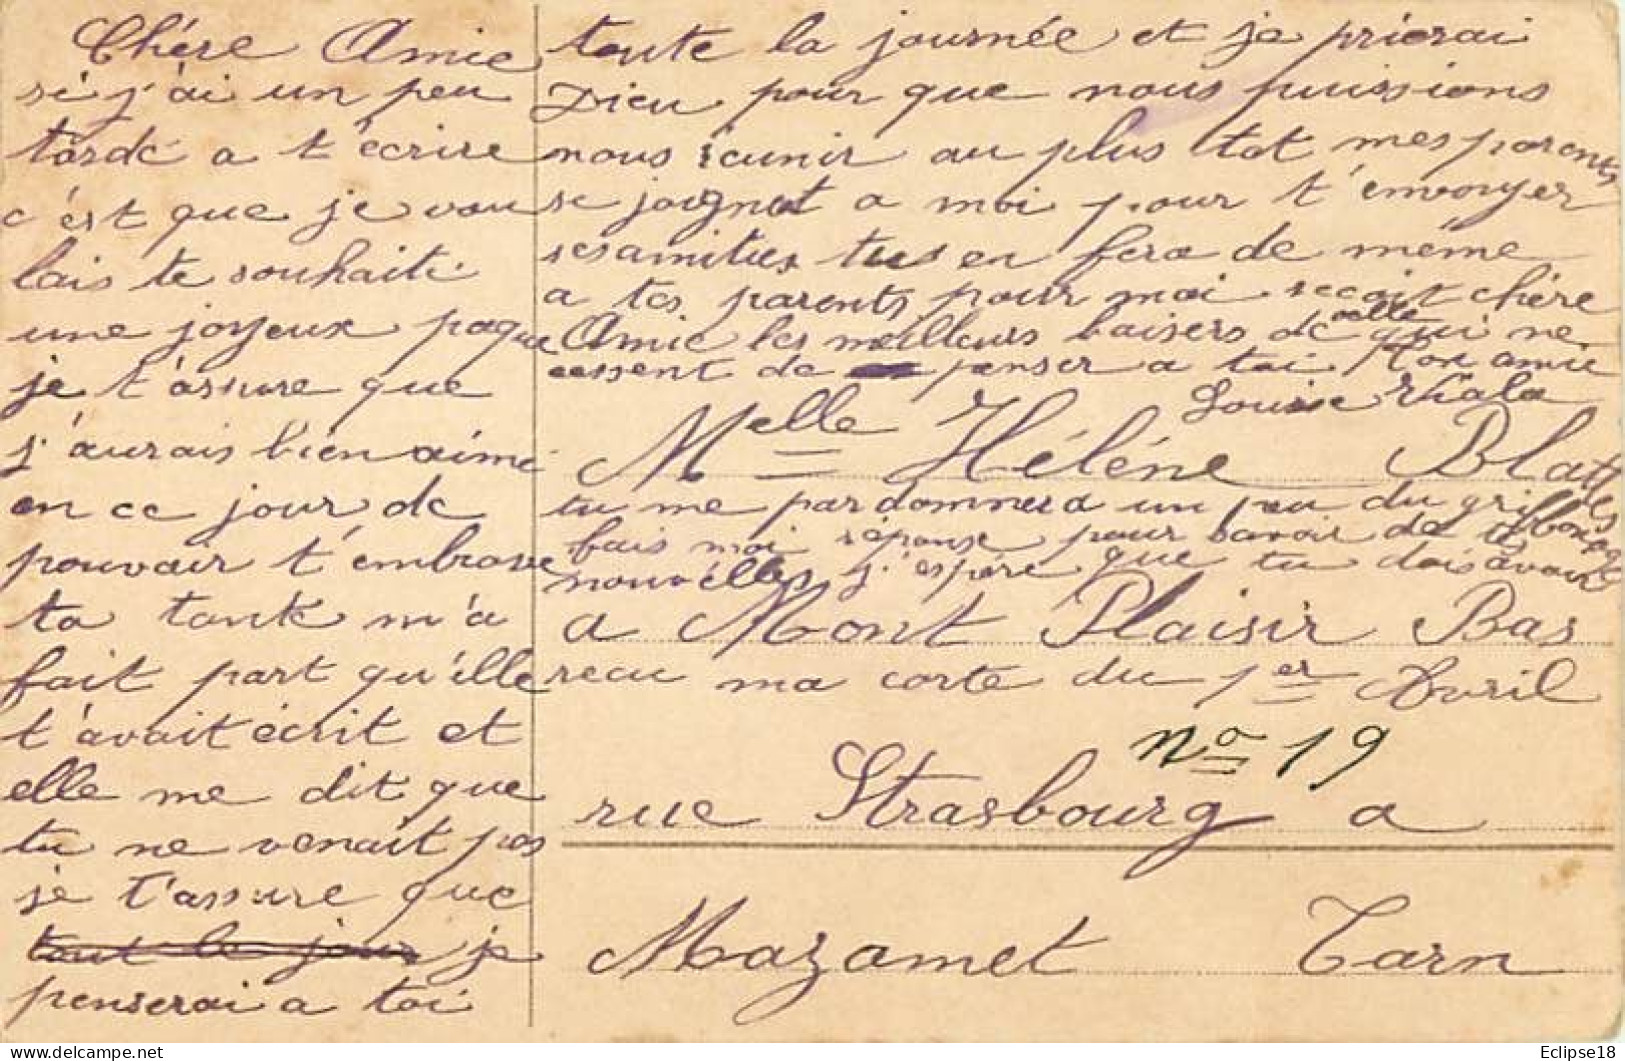 Chére Amie
si j'ai un peu
tardé a t'écrire
c'est que je vou
lais te souhaité
une joyeux paque
je t'assure que
j'aurais bien aimé
en ce jour de
pouvoir t'embrase
ta tante m'a
fait part qu'ille
t'avait écrit et
elle me dit que
tu ne venait pas
je t'assure que
tout le jour je
penserai a toi
toute la journée et je prierai
Dieu pour que nous puissions
nous réunir au plus tot mes parents
se joignet a moi pour t'envoyer
ses amities tu en fera de même
a tes parents pour moi reçoit chére
Amie les meilleurs baisers de celle qui ne
cessent de penser a toi Ton amie
Louise Viala
Melle Héléne Blattes
tu me pardonnera un peu du grifbonage
fais moi réponse pour savoir de
nouvélles j'espére que tu dois avoir
a Mont Plaisir Bas
recu ma carte du 1er Avril
No 19
rue Strasbourg a
Mazamet Tarn
delcampe.net
Eclipse18